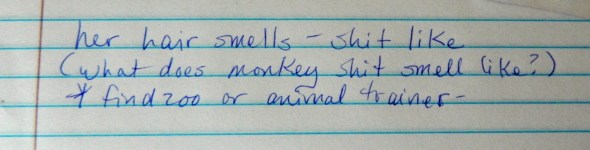 her hair smells - shit like
(what does monkey shit smell like?)
* find zoo or animal trainer-